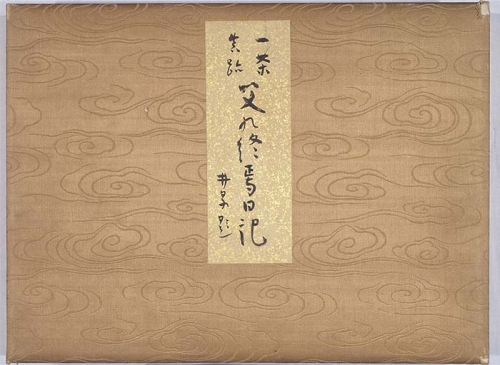 一茶
真蹟
父の終焉日記
井泉題